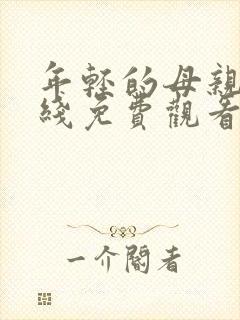 年轻的母親
綫免費觀看
一介閽者